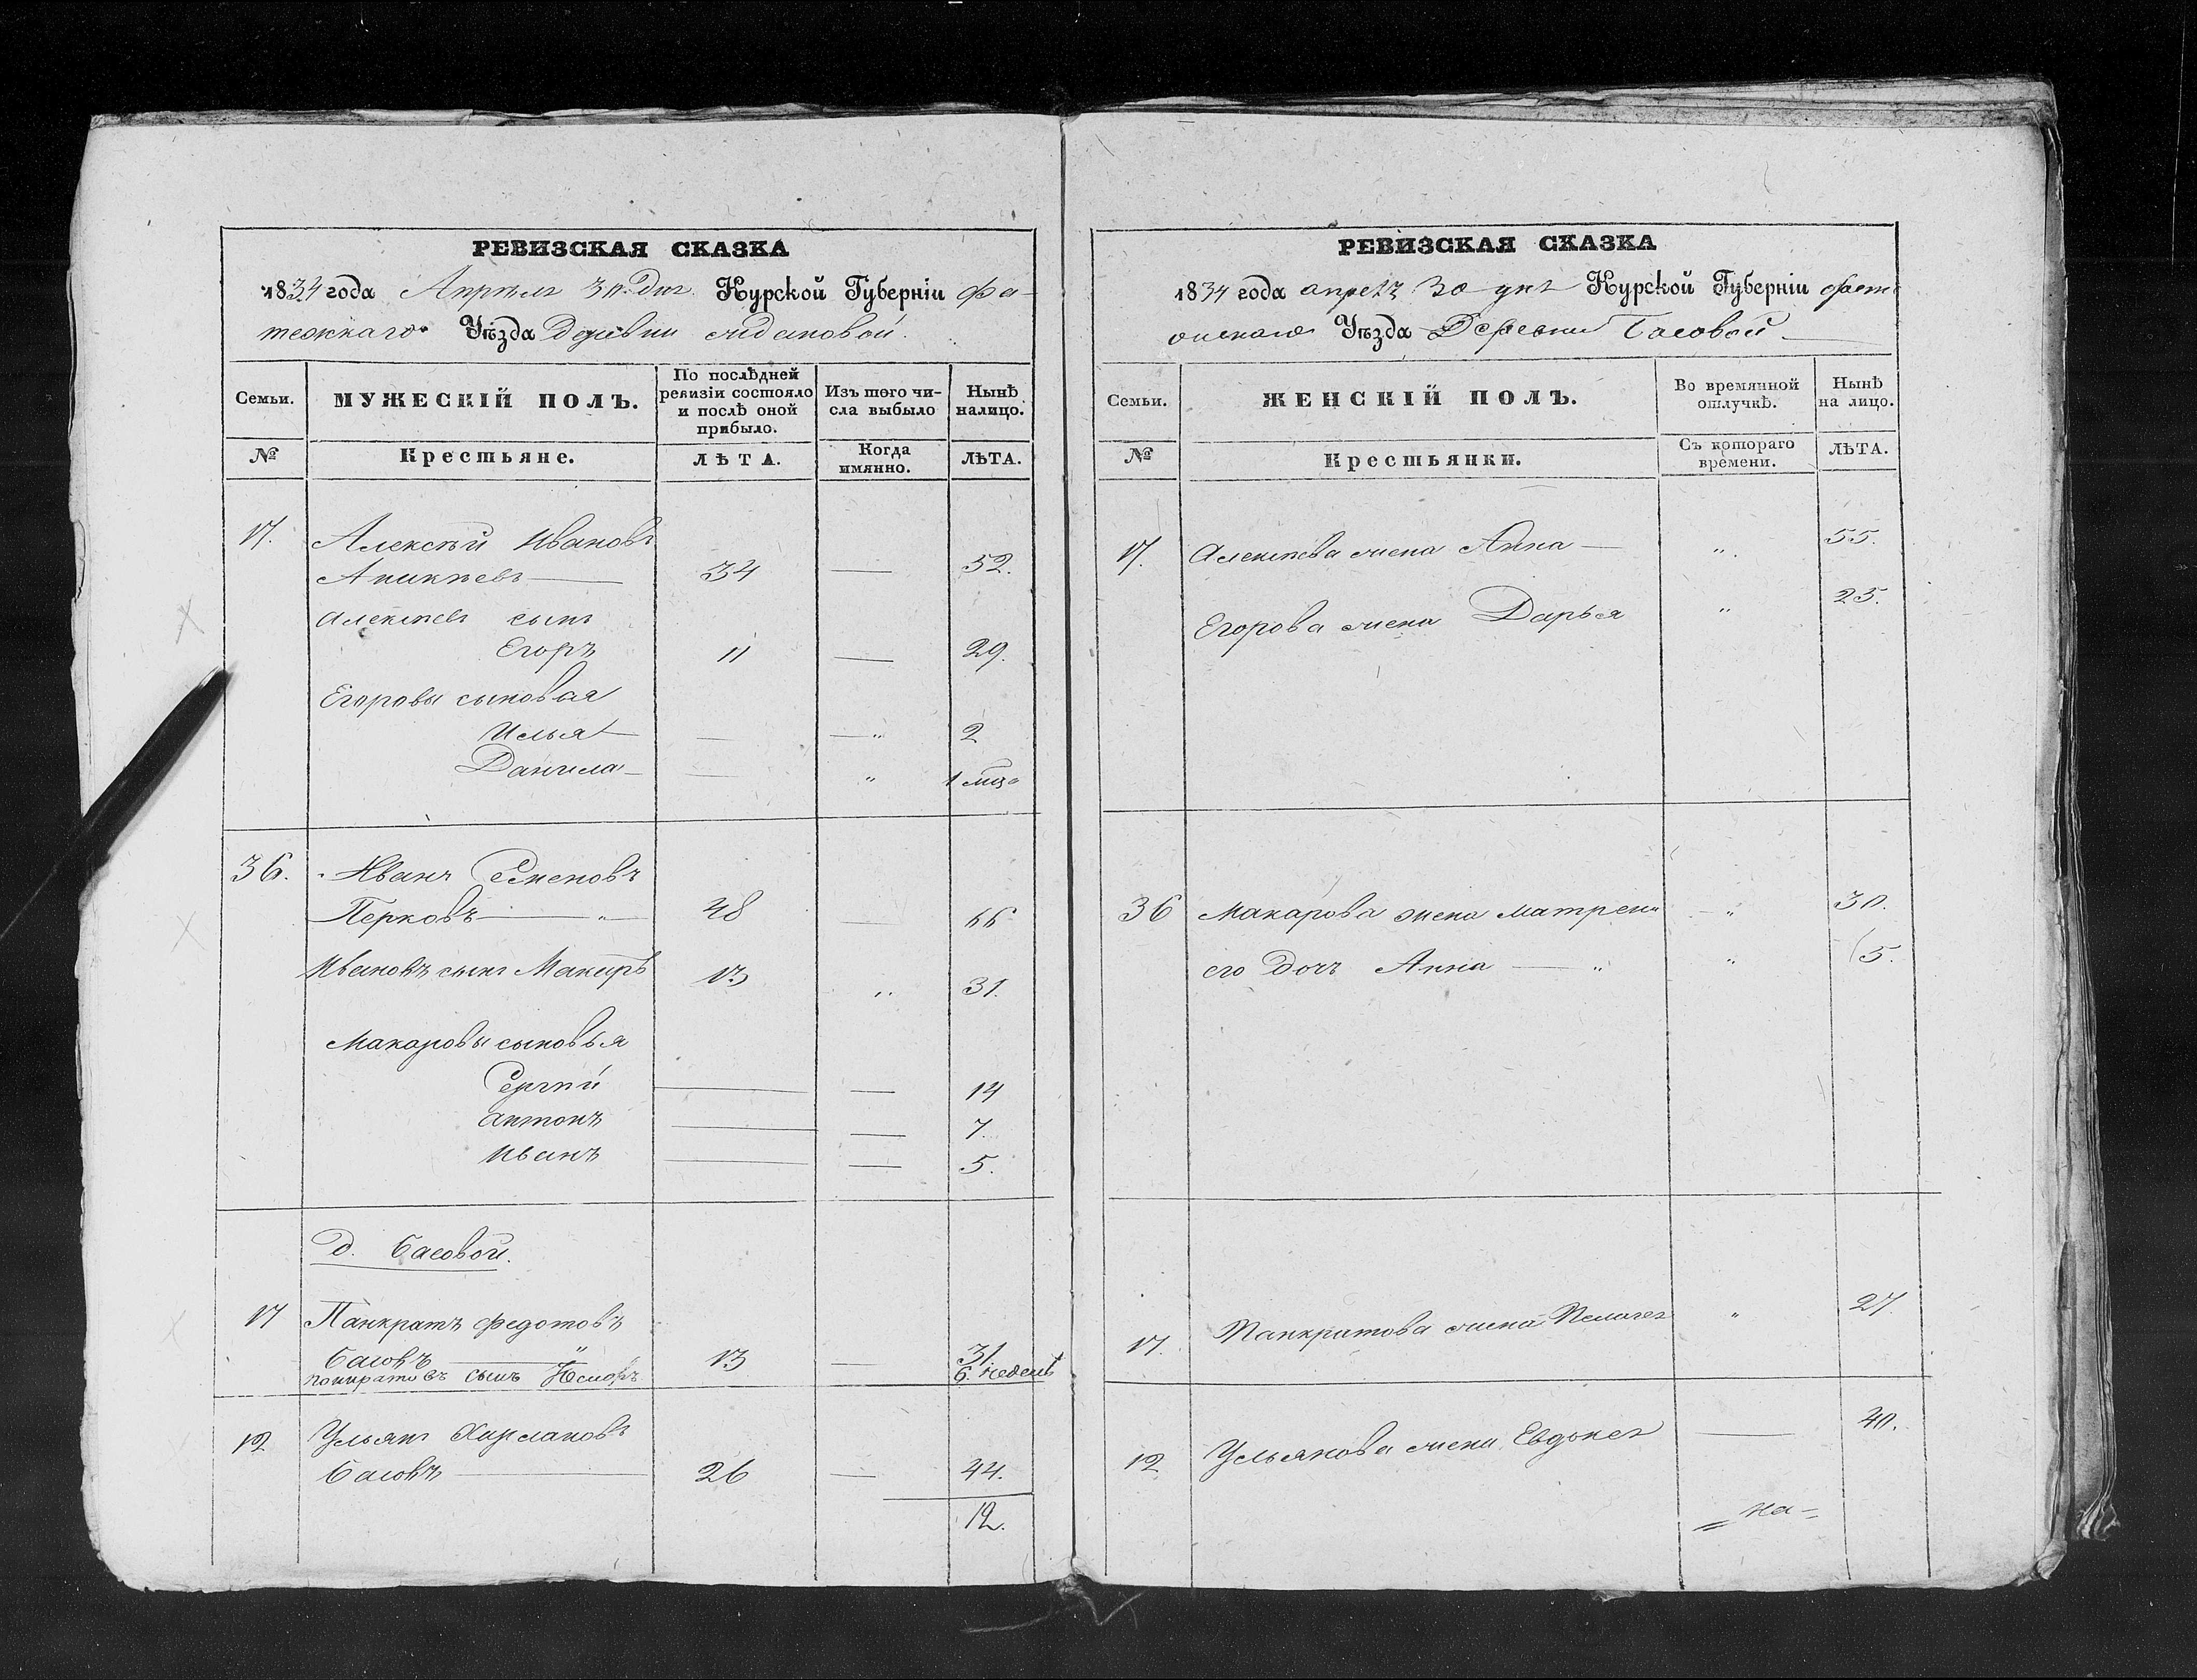 РЕВИЗСКАЯ СКАЗКА
1834 года Апрѣля 30 дня Курской Губерніи Фа-
тежскаго Уѣзда Деревни
Семьи.
МУЖЕСКІЙ ПОЛЪ.
По послѣдней
ревизіи состояло
и послѣ оной
прибыло.
Изъ того чи-
сла выбыло
Нынѣ
налицо.
№
Крестьяне.
ЛѢТА.
Когда
имянно.
ЛѢТА.
17. Алексѣй Ивановъ
Аникѣевъ — 34 — 52.
Алексѣевъ сынъ
Егоръ 11 — 29.
Егоровы сыновья
Илья — — — „ 2
Данила — — „ 1 мца
36. Иванъ Семеновъ
Перковъ — „ — 48 — 66
Ивановъ сынъ Макаръ 13 „ 31.
Макаровы сыновья
Сергѣй — — 14
Антонъ — — 7.
Иванъ — — 5.
д. Басовой.
17 Панкратъ Федотовъ
Басовъ — „ 13 — 31
Панкратовъ сынъ 6. недель
12 Ульянъ
Басовъ — 26 — 44.
12.
РЕВИЗСКАЯ СКАЗКА
1834 года апреля 30 дня Курской Губерніи Фате
жскаго Уѣзда Деревни Басовой —
Семьи.
ЖЕНСКІЙ ПОЛЪ.
Во времянной
отлучкѣ.
Нынѣ
на лицо.
№
Крестьянки.
Съ котораго
времени.
ЛѢТА.
17. Алексѣева жена Анна — „ 55.
Егорова жена Дарья „ 25.
36 Макарова жена Матрена — „ 30.
его дочь Анна — „ „ 5.
17. Панкратова жена Пелагея „ 27.
12 Ульянова жена Евдокея — 40.
= на =